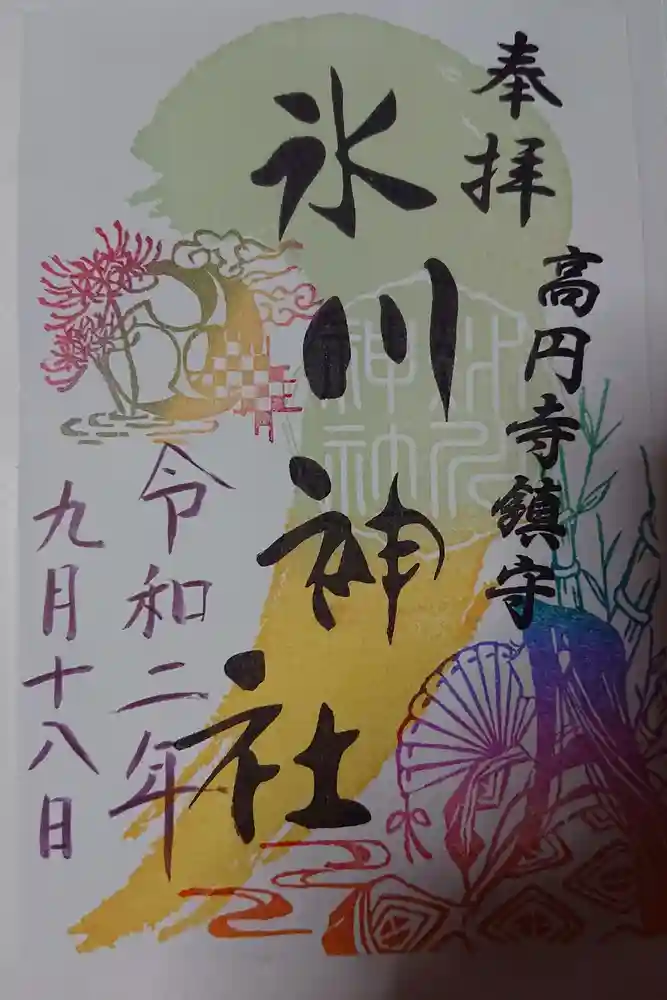 奉拝
高円寺鎮守
氷川神社
氷川
神社
令和二年
九月十八日